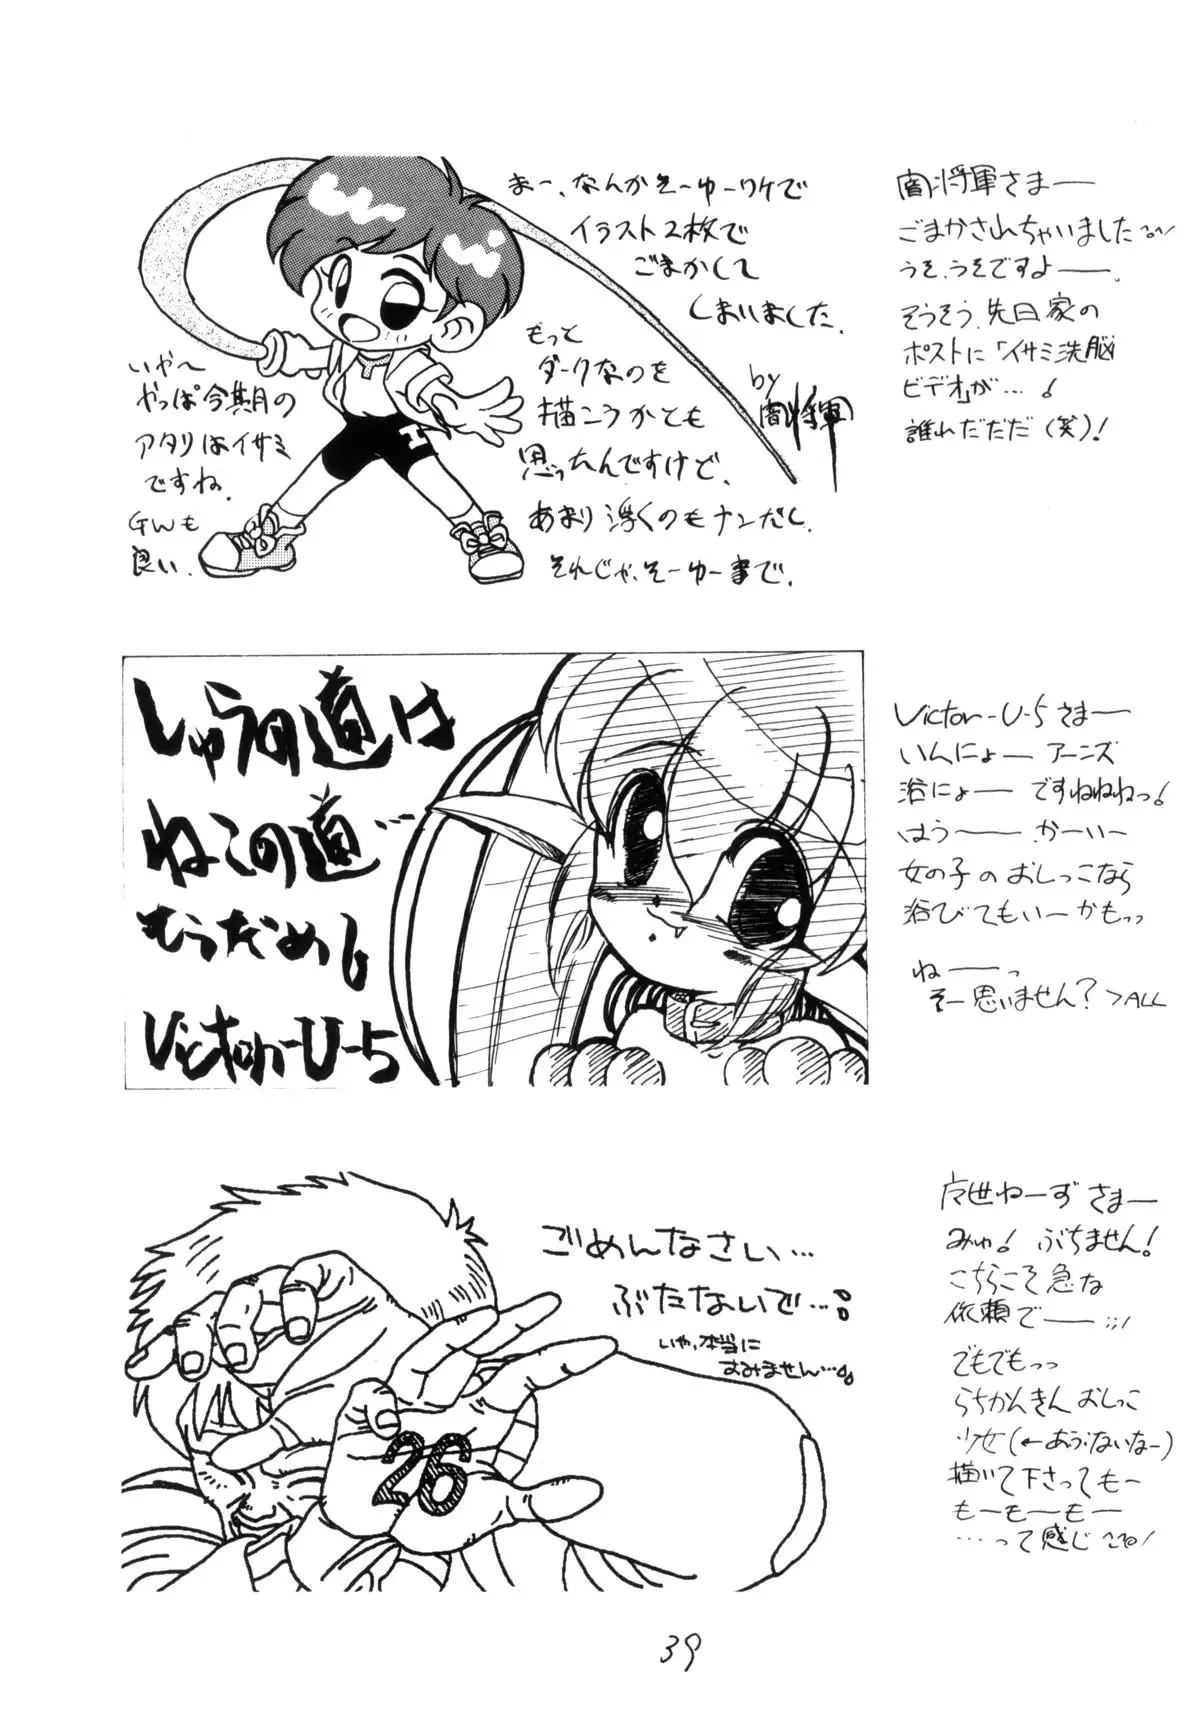 まー、なんかそーゆーワケで
イラスト2枚で
ごまかして
しまいました.
by
闇将軍
もっと
ダークなのを
描こうかとも
思ったんですけど.
あまり浮くのもナンだし.
それじゃ、そーゆー事で.
いや〜
やっぱ今期の
アタリはイサミ
ですね.
GWも
良い.
闇将軍さまー
ごまかされちゃいました
うそ、うそですよー.
そうそう、先日家の
ポストに「イサミ洗脳
ビデオ」が…!
誰れだだだ(笑)!
しゅうの道は
ねこの道…
もうだめ!
Victor-U-5
Victor-U-5さまー
いんにょー アーニズ
浴にょー ですねねねっ!
はうー かーいー
女の子のおしっこなら
浴びてもいーかもっっ
ねーっ
そー思いません?>ALL
ごめんなさい…
ぶたないで…!!
いや、本当に
すみません…!
26
ねーず さまー
みゅ! ぶちません!
こちらこそ急な
依頼でー
でもでもっっ
らちかんきんおしっこ
少女(←あぶないなー)
描いて下さってもー
もーもーもー
…って感じ
39